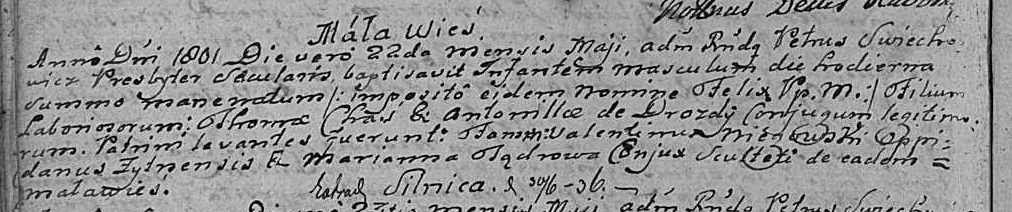 Mała Wieś.
Annô Dńi 1801 Die verò 22da mensis Maji, adm Rńdg Petrus Swiecho-
wicz Presbyter Secularis, baptisavit Infantem masculum die hodierna
summo mane natum /: impositô eidem nomine Felix Vp. M. :/ Filium
Laboriosorum: Thomæ Chas & Antonillæ de Drozdy Conjugum legitimo-
rum. Patrini levantes fuerunt: Valentinus Oppi-
danus Zytnensis & Marianna Conjux Sculteti de eadem =
Maławieś. Silnica.
Die vero 22da mensis Maji, adm Rńdg Petrus